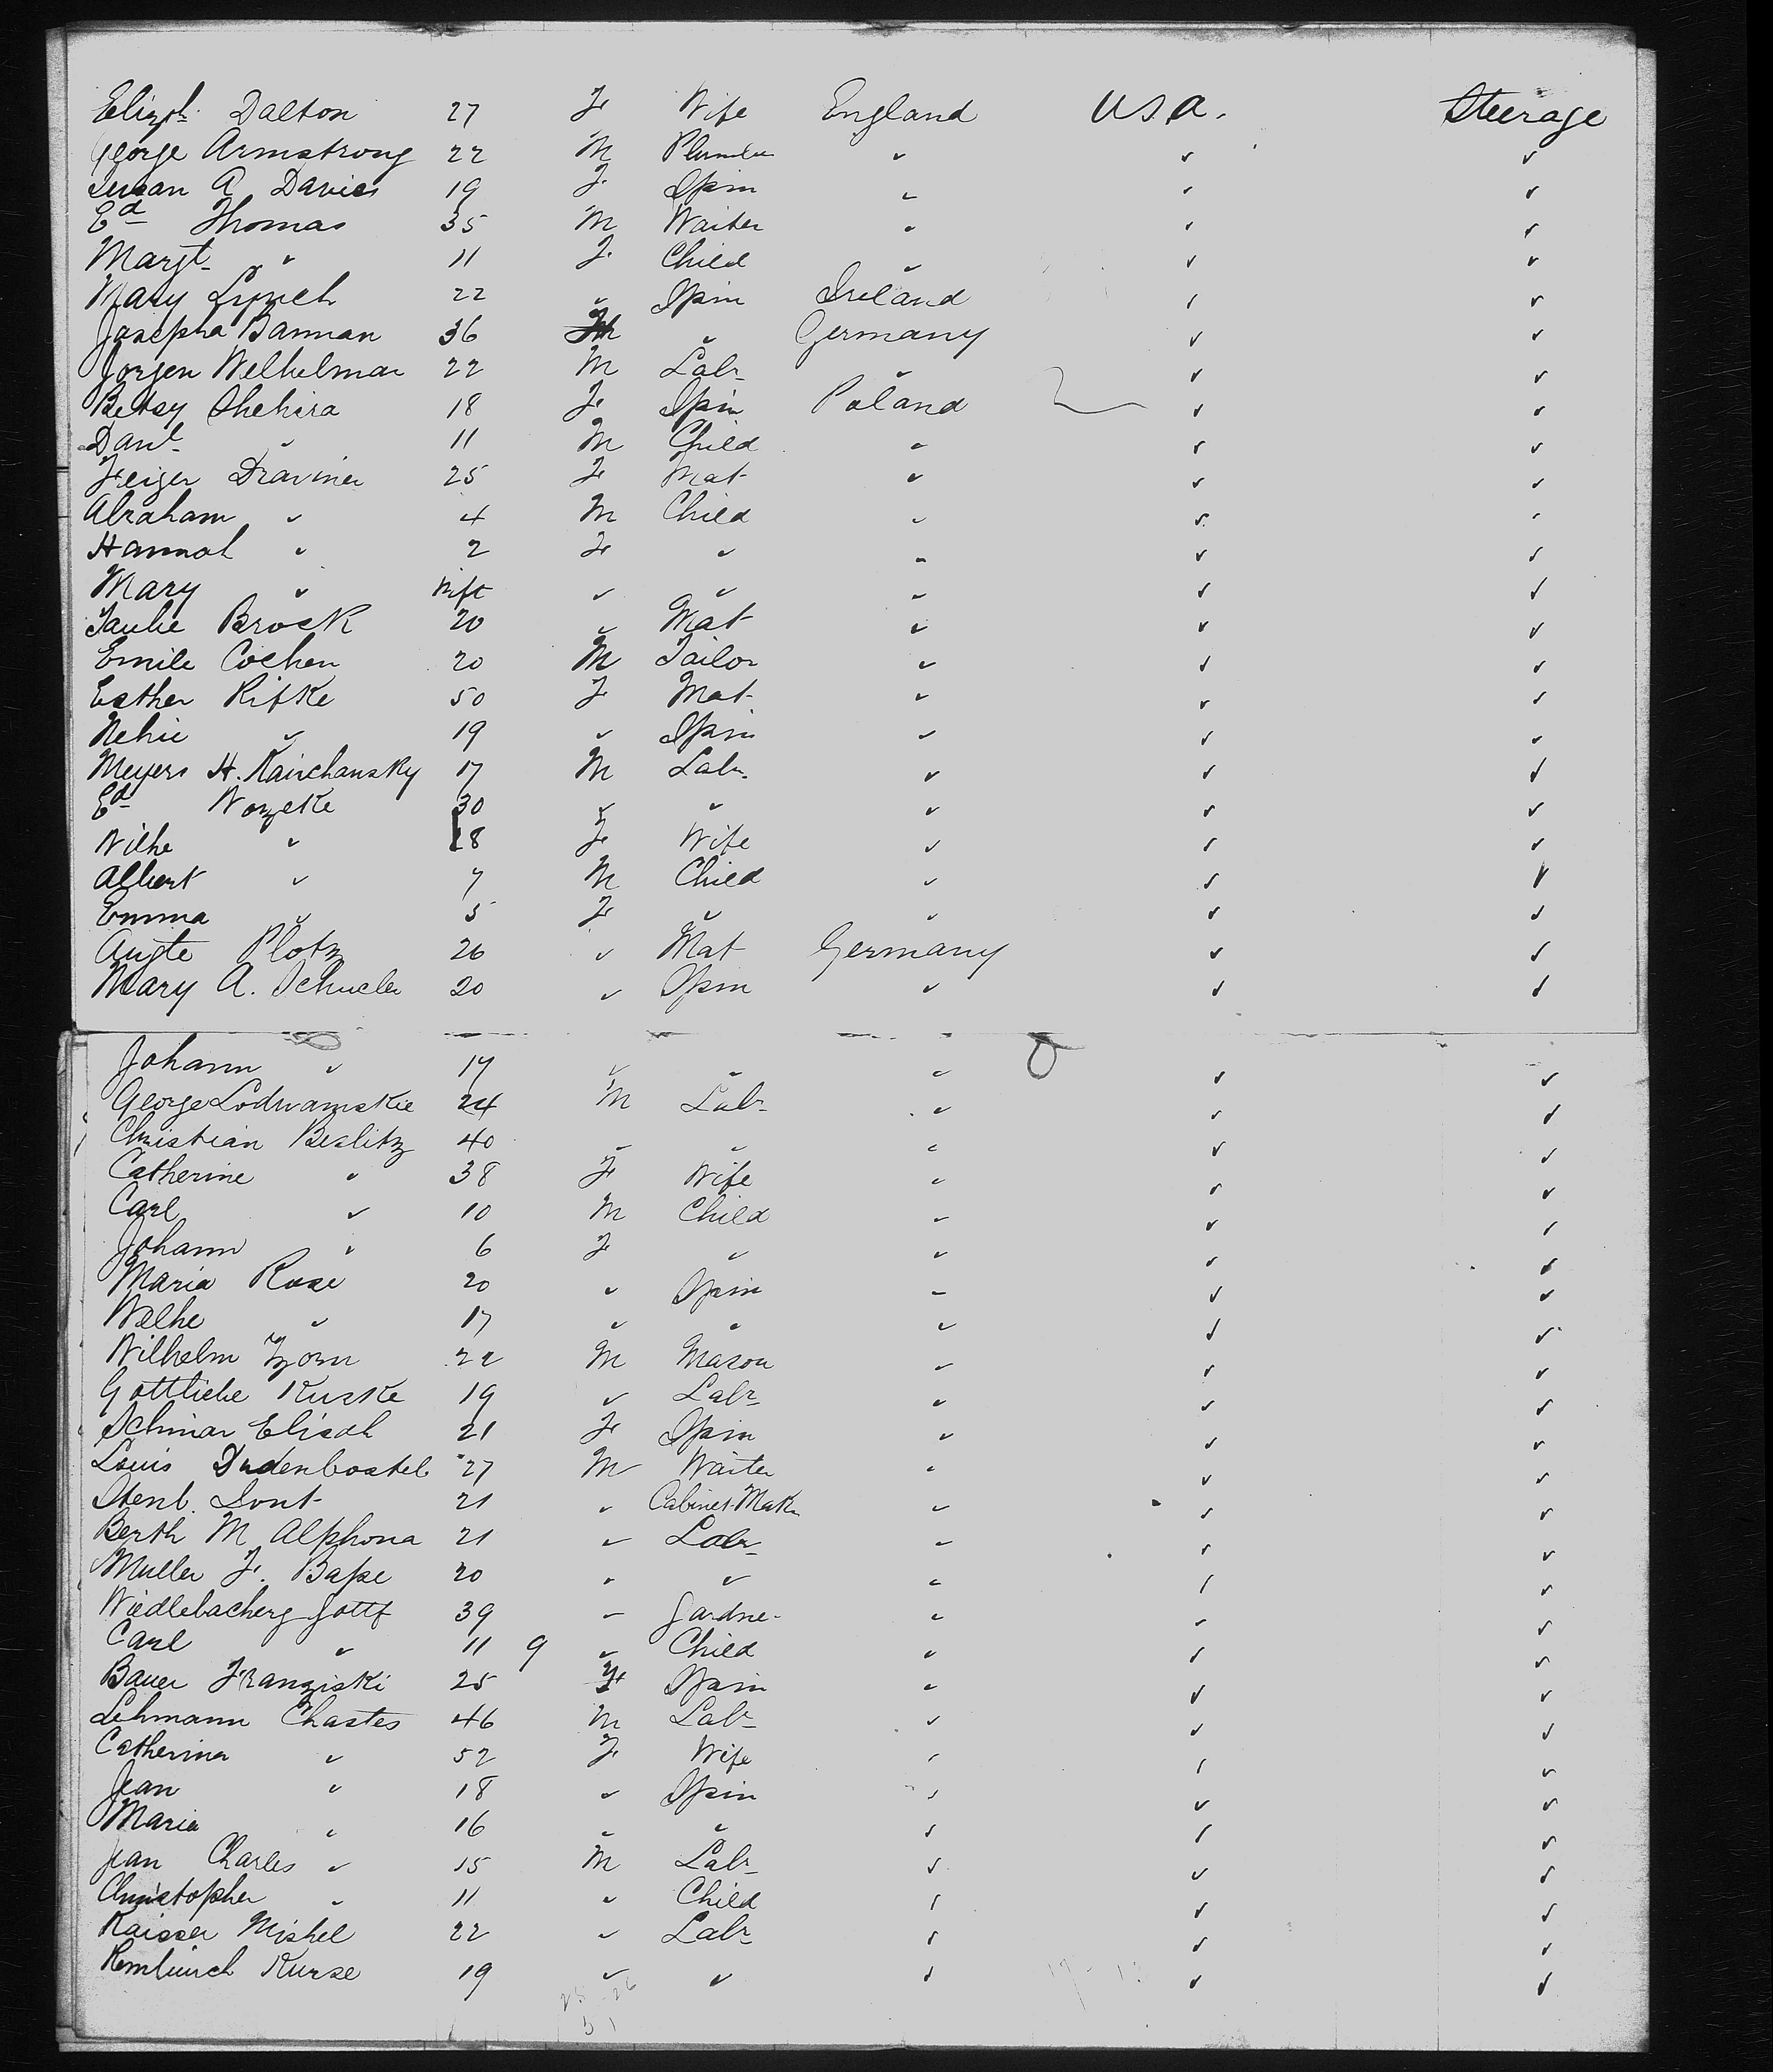 Elizth Dalton 27 F Wife England USA. Steerage
George Armstrong 22 M Plumber " " "
Susan A Davies 19 F Spin " " "
Ed Thomas 35 M Waiter " " "
Margt " 11 F Child " " "
Mary Lynch 22 " Spin Ireland " "
Josepha Banman 36 " Germany " "
Jorgen Welhelmar 22 M Labr " " "
Betsy Shehira 18 F Spin Poland " "
Danl " 11 M Child " " "
Feiger Draviner 25 F Mat " " "
Abraham " 4 M Child " " "
Hannah " 2 F " " " "
Mary " Inft " " " " "
Taube Brock 20 " Mat " " "
Emile Cochen 20 M Tailor " " "
Esther Rifke 50 F Mat " " "
Nehie " 19 " Spin " " "
Meyers H. Kairchansky 17 M Labr " " "
Ed Wozeke 30 " " " " "
Wilhe " 28 F Wife " " "
Albert " 7 M Child " " "
Emma " 5 F " " " "
Augte Plotz 26 " Mat Germany " "
Mary A. Schueler 20 " Spin " " "
Johann " 17 " " " " "
George Lodwamskie 24 M Labr " " "
Christian Beslitz 40 " " " " "
Catherine " 38 F Wife " " "
Carl " 10 M Child " " "
Johann " 6 F " " " "
Maria Rose 20 " Spin " " "
Welhe " 17 " " " " "
Wilhelm Zorn 22 M Mason " " "
Gottliebe Kuske 19 " Labr " " "
Schmar Elisah 21 F Spin " " "
Louis Dudenbostel 27 M Waiter " " "
Stenl. Dont 21 " Cabinet Makr " " "
Berth M Alphona 21 " Labr " " "
Muller F. Bape 20 " " " " "
Wiedlebacherg Gottf 39 " Gardne " " "
Carl " 11 9 " Child " " "
Bauer Franziski 25 F Spin " " "
Lehmann Chastes 46 M Labr " " "
Catherina " 52 F Wife " " "
Jean " 18 " Spin " " "
Maria " 16 " " " " "
Jean Charles " 15 M Labr " " "
Christopher " 11 " Child " " "
Kaisser Mishel 22 " Labr " " "
Kurse 19 " " " " "